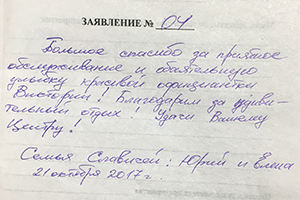 ЗАЯВЛЕНИЕ № 04
Большое спасибо за приятное
обслуживание и обаятельную
улыбку красивой официантки
Виктории! Благодарим за удиви-
тельный отдых! Удачи Вашему
Центру!
Семья Слависей: Юрий и Елена
21 октября 2017 г.